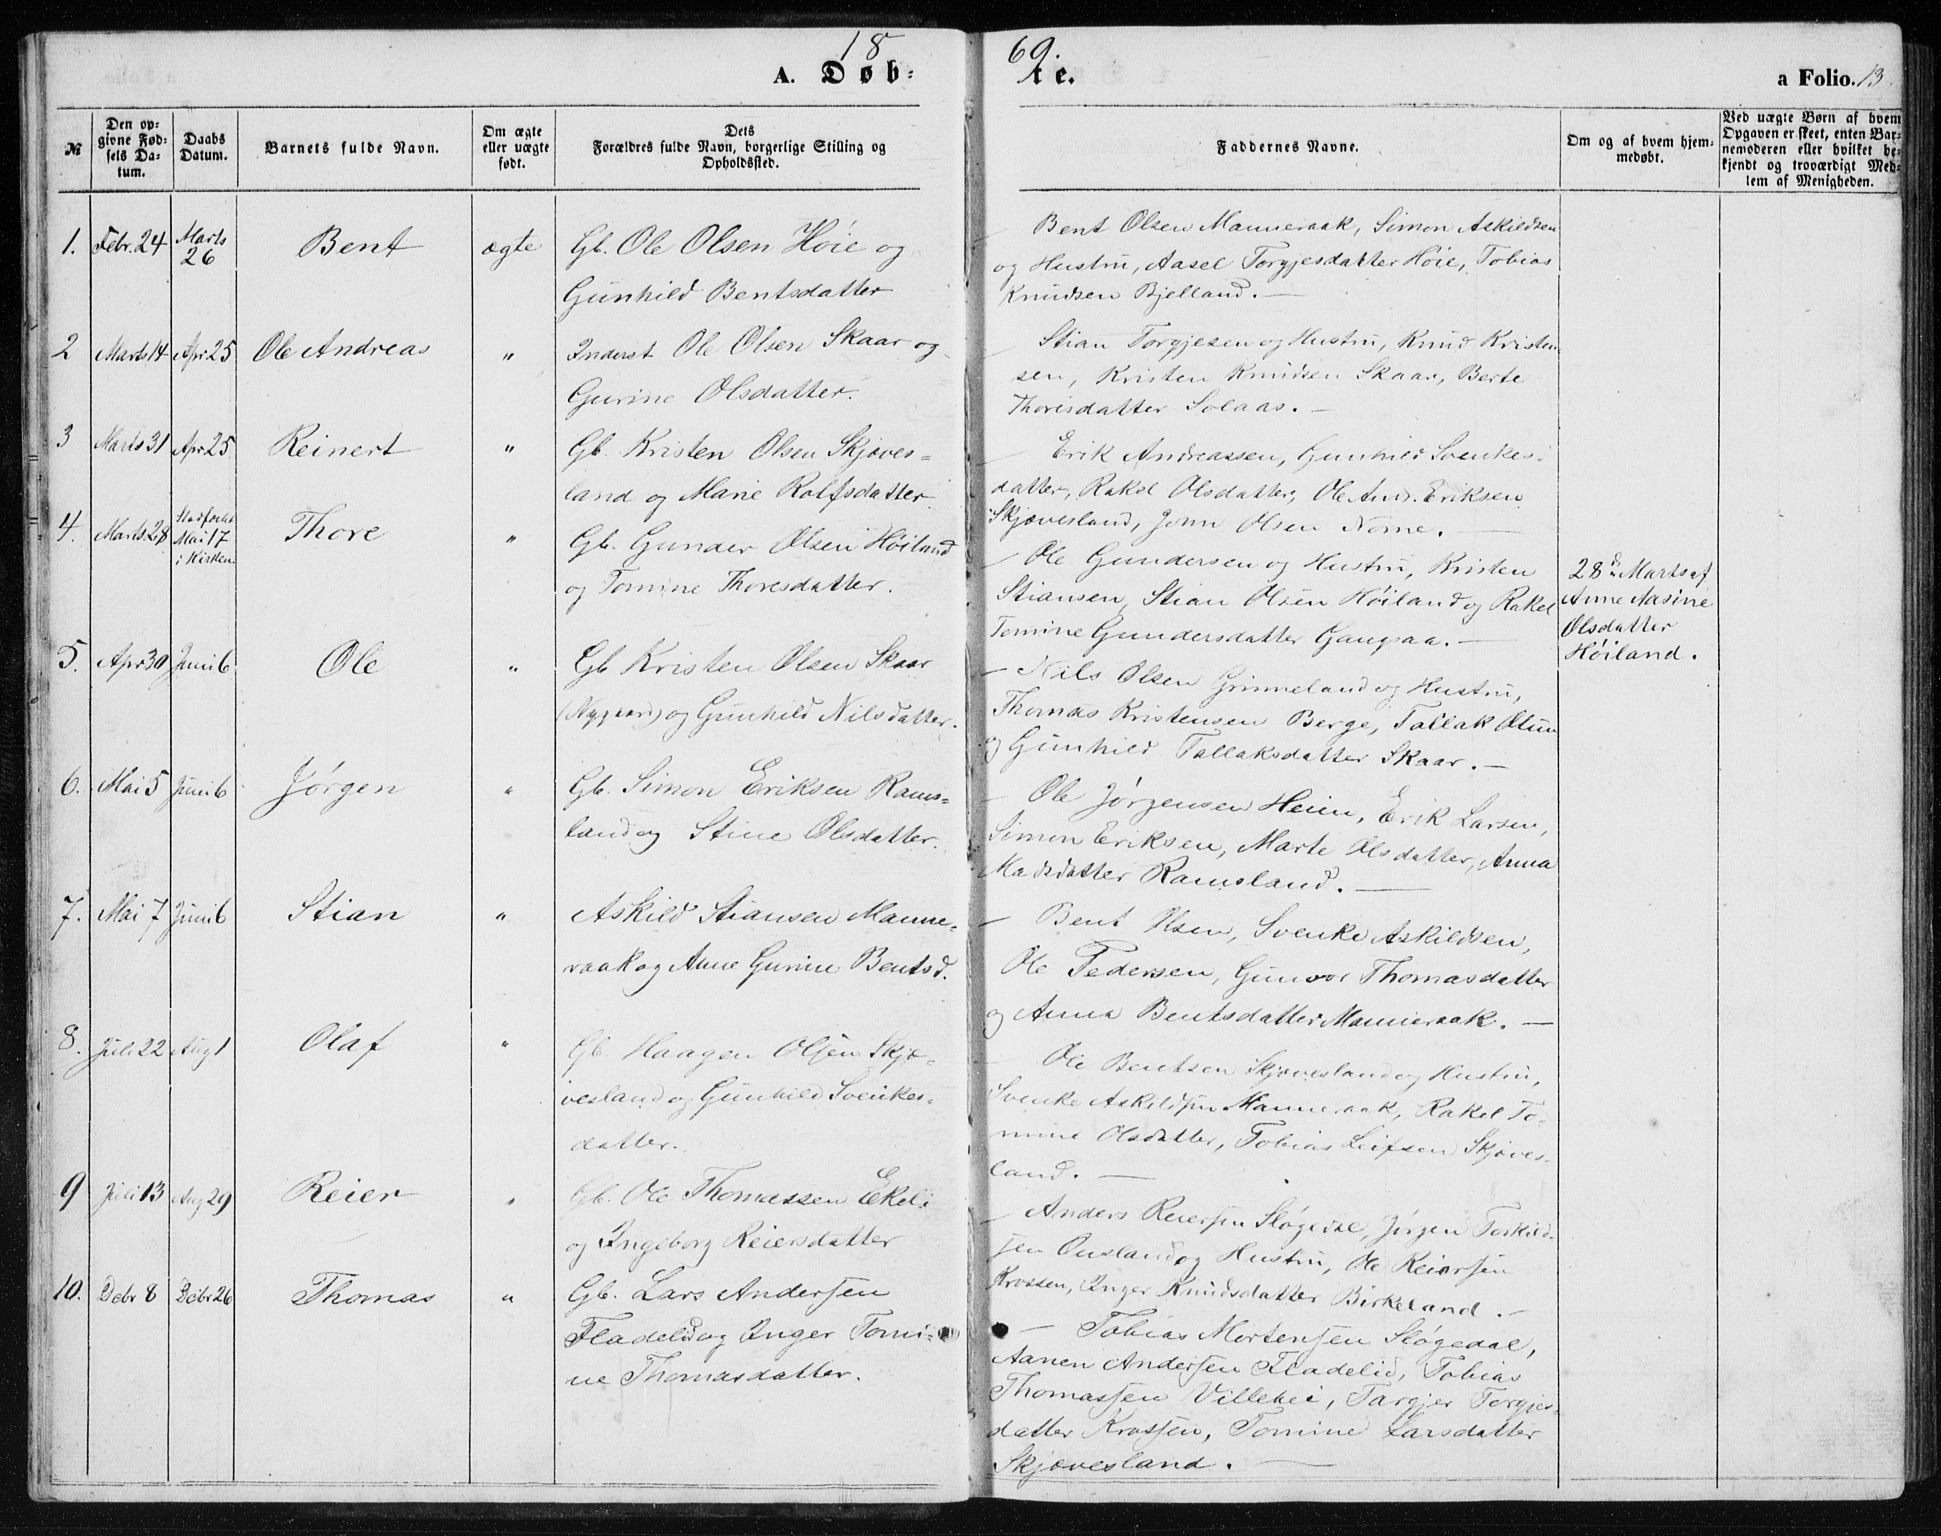 18 69.
A. Døb: te. a Folio. 13.
№
Den op-
givne Fød-
sels Da-
tum.
Daabs
Datum.
Barnets fulde Navn.
Om ægte
eller uægte
født.
Dets
Forældres fulde Navn, borgerlige Stilling og
Opholdssted.
Faddernes Navne.
Om og af hvem hjem-
medøbt.
Ved uægte Børn af hvem
Opgaven er skeet, enten Bar-
nemoderen eller hvilket be-
kjendt og troværdigt Med-
lem af Menigheden.
1. Febr. 24 Marts
26
Bent ægte Gb. Ole Olsen Høie og
Gunhild Bentsdatter
Bent Olsen Manneraak, Simon Askildsen
og Hustru, Aasel Torgjesdatter Høie, Tobias
Knudsen Bjelland. —
2 Marts 14 Apr 25 Ole Andreas " Inderst Ole Olsen Skaar og
Gurine Olsdatter.
Stian Torgjesen og Hustru, Knud Kristen-
sen, Kristen Knudsen Skaar, Berte
Thoresdatter Solaas. —
3 Marts 31 Apr 25 Reinert " Gb. Kristen Olsen Skjøves-
land og Marie Rolfsdatter
— Erik Andreassen, Gunhild Svenkes-
datter, Rakel Olsdatter, Ole Andr. Eriksen
Skjøvesland, John Olsen Nome. —
4. Marts 28 Stadfæstet
Mai 17
i Kirken
Thore " Gb. Gunder Olsen Høiland
og Tomine Thoresdatter.
— Ole Gundersen og Hustru, Kristen
Stiansen, Stian Olsen Høiland og Rakel
Tomine Gundersdatter Gangsaa. —
28de Marts af
Anne Aasine
Olsdatter
Høiland.
5. Apr 30 Juni 6 Ole " Gb Kristen Olsen Skaar
(Nygaard) og Gunhild Nilsdatter.
— Nils Olsen Grimeland og Hustru,
Thomas Kristensen Berge, Tallak Olsen
og Gunhild Tallaksdatter Skaar. —
6. Mai 5 Juni 6 Jørgen " Gb. Simon Eriksen Rams-
land og Stine Olsdatter.
— Ole Jørgensen Heien, Erik Larsen,
Simon Eriksen, Marte Olsdatter, Anna
Madsdatter Ramsland. —
7. Mai 7 Juni 6 Stian " Askild Stiansen Manne-
raak og Anne Gurine Bentsd.
— Bent Olsen, Svenke Askildsen,
Ole Pedersen, Gunvor Thomasdatter
og Anna Bentsdatter Manneraak. —
8. Juli 22 Aug 1 Olaf " Gb. Haagen Olsen Skjø-
vesland og Gunhild Svenkes-
datter.
— Ole Bentsen Skjøvesland og Hustru,
Svenke Askildsen Manneraak, Rakel To-
mine Olsdatter, Tobias Leifsen Skjøves-
land. —
9 Juli 13 Aug 29 Reier " Gb. Ole Thomassen Ekeli
og Ingeborg Reiersdatter
— Anders Reiersen Sløgedal, Jørgen Torkild-
sen Ousland og Hustru, Ole Reiersen
Krossen, Inger Knudsdatter Birkeland. —
10. Debr 8 Debr 26 Thomas " Gb. Lars Andersen
Fladelid og Inger Tomi-
ne Thomasdatter.
— Tobias Mortensen Sløgedal,
Aanen Andersen Fladelid, Tobias
Thomassen Villehei, Targjer Torgjes-
datter Krossen, Tomine Larsdatter
Skjøvesland. —